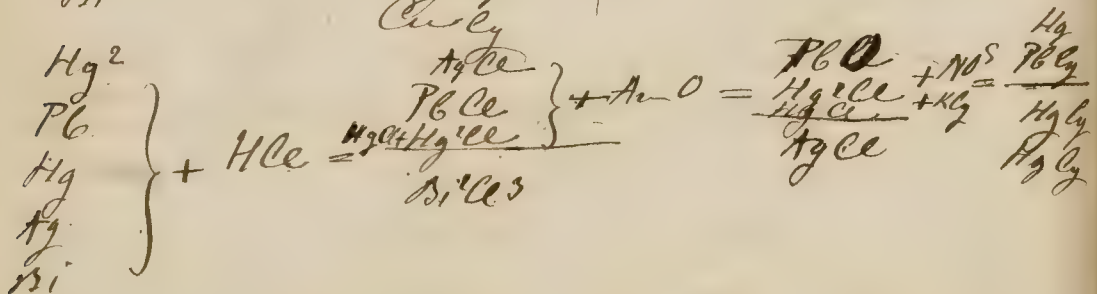 Bi
Cu Cy
Hg²
Pb
Hg
Ag
Bi
} + HCl =
AgCl
PbCl
HgCl + Hg²Cl
Bi²Cl3
} + Am O =
PbO
Hg²Cl
HgCl
AgCl
+ NO5
+ KCy
=
Hg
PbCy
HgCy
AgCy